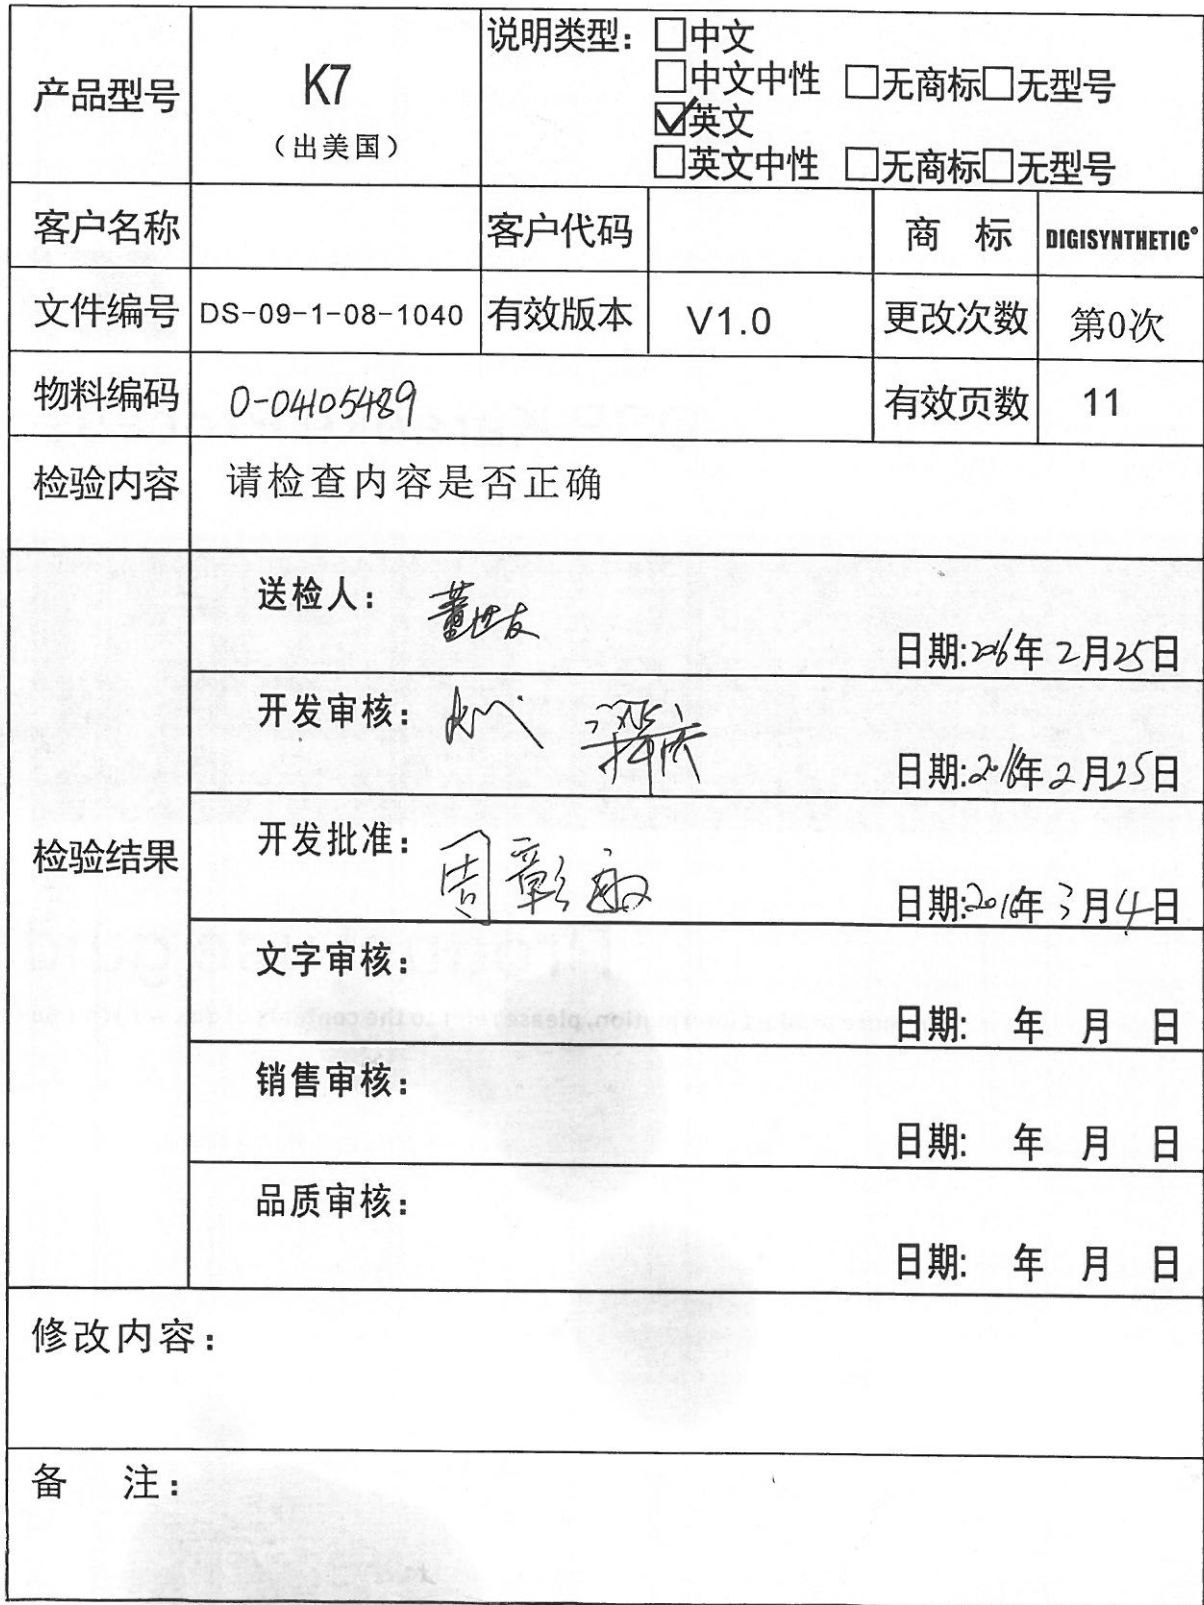 产品型号
K7
（出美国）
说明类型：□中文
□中文中性 □无商标□无型号
☑英文
□英文中性 □无商标□无型号
客户名称
客户代码
商 标
DIGISYNTHETIC®
文件编号
DS-09-1-08-1040
有效版本
V1.0
更改次数
第0次
物料编码
0-04105489
有效页数
11
检验内容
请检查内容是否正确
检验结果
送检人：
董世友
日期:2016年2月25日
开发审核：
日期:2016年2月25日
开发批准：
周彰
日期:2016年3月4日
文字审核：
日期: 年 月 日
销售审核：
日期: 年 月 日
品质审核：
日期: 年 月 日
修改内容：
备 注：